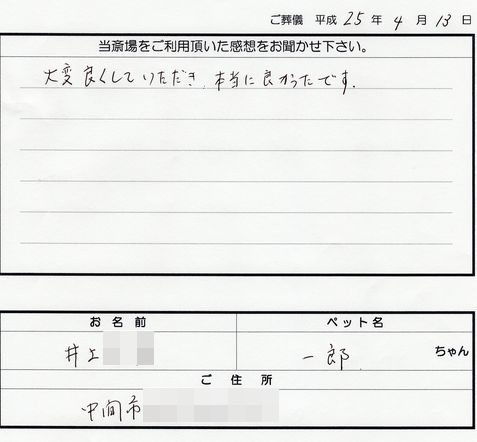 ご葬儀 平成 25 年 4 月 13 日
当斎場をご利用頂いた感想をお聞かせ下さい。
大変良くしていただき、本当に良かったです。
お名前 ペット名
井上 一郎 ちゃん
ご住所
中間市